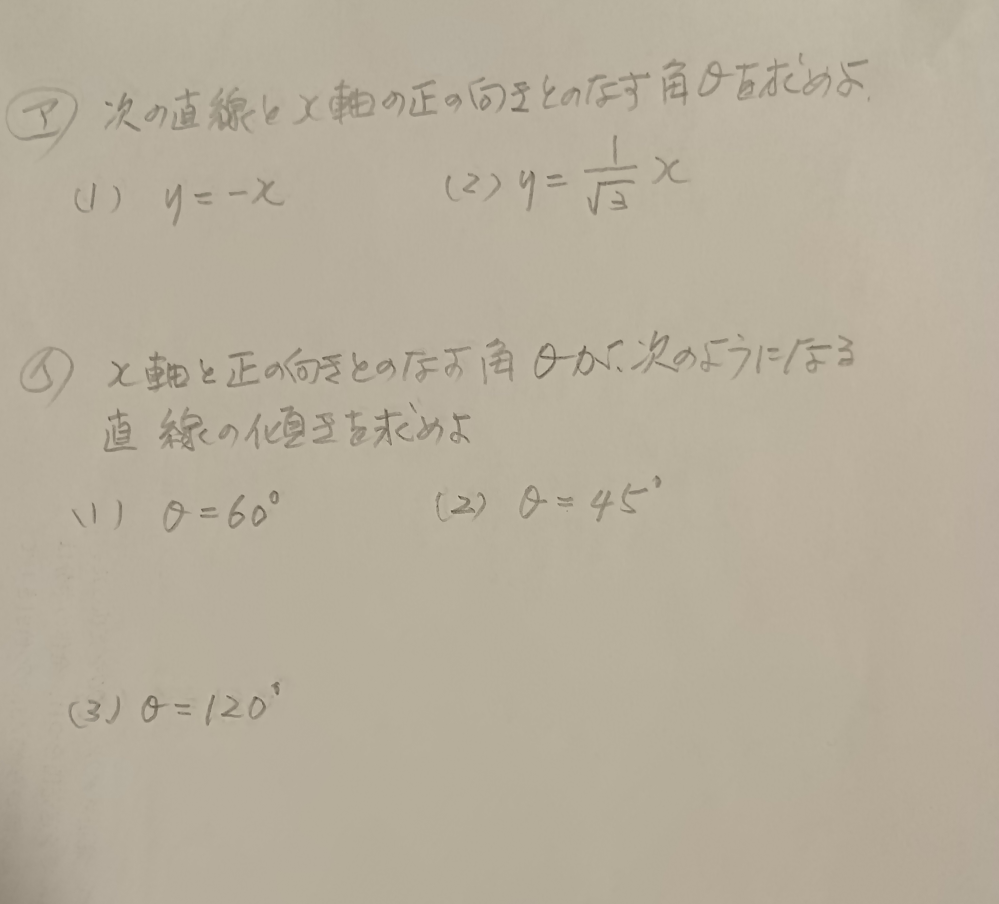 ㋐ 次の直線とx軸の正の向きとのなす角θを求めよ.
(1) y=-x (2) y=\frac{1}{\sqrt{3}}x
㋑ x軸と正の向きとのなす角θが、次のようになる
直線の傾きを求めよ
(1) θ=60° (2) θ=45°
(3) θ=120°